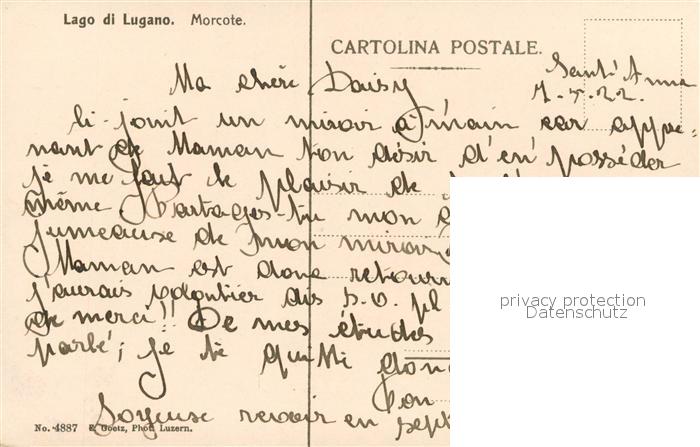 Lago di Lugano. Morcote.
CARTOLINA POSTALE.
Sant'Anna
7.5.22.
Ma chère Daisy
Ci-joint un miroir à main car appre-
nant de Maman ton désir d'en posséder
je me fait le plaisir de
même Partages-tu mon
jumeause de mon miroir
Maman est donc retourn
j'aurais volontier dis
de merci!! De mes études
parlé; je te quitte donc
Ton
Joyeuse revoir en sept
No. 4887 E. Goetz, Phot. Luzern.
privacy protection
Datenschutz